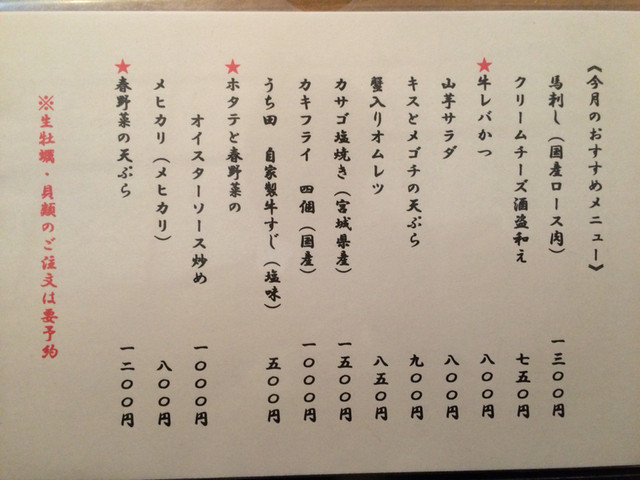 《今月のおすすめメニュー》
馬刺し(国産ロース肉) 一三〇〇円
クリームチーズ酒盗和え 七五〇円
★牛レバかつ 八〇〇円
山芋サラダ 八〇〇円
キスとメゴチの天ぷら 九〇〇円
蟹入りオムレツ 八五〇円
カサゴ塩焼き(宮城県産) 一五〇〇円
カキフライ 四個(国産) 一〇〇〇円
うち田 自家製牛すじ(塩味) 五〇〇円
★ホタテと春野菜の
オイスターソース炒め 一〇〇〇円
メヒカリ(メヒカリ) 八〇〇円
★春野菜の天ぷら 一二〇〇円
※生牡蠣・貝類のご注文は要予約